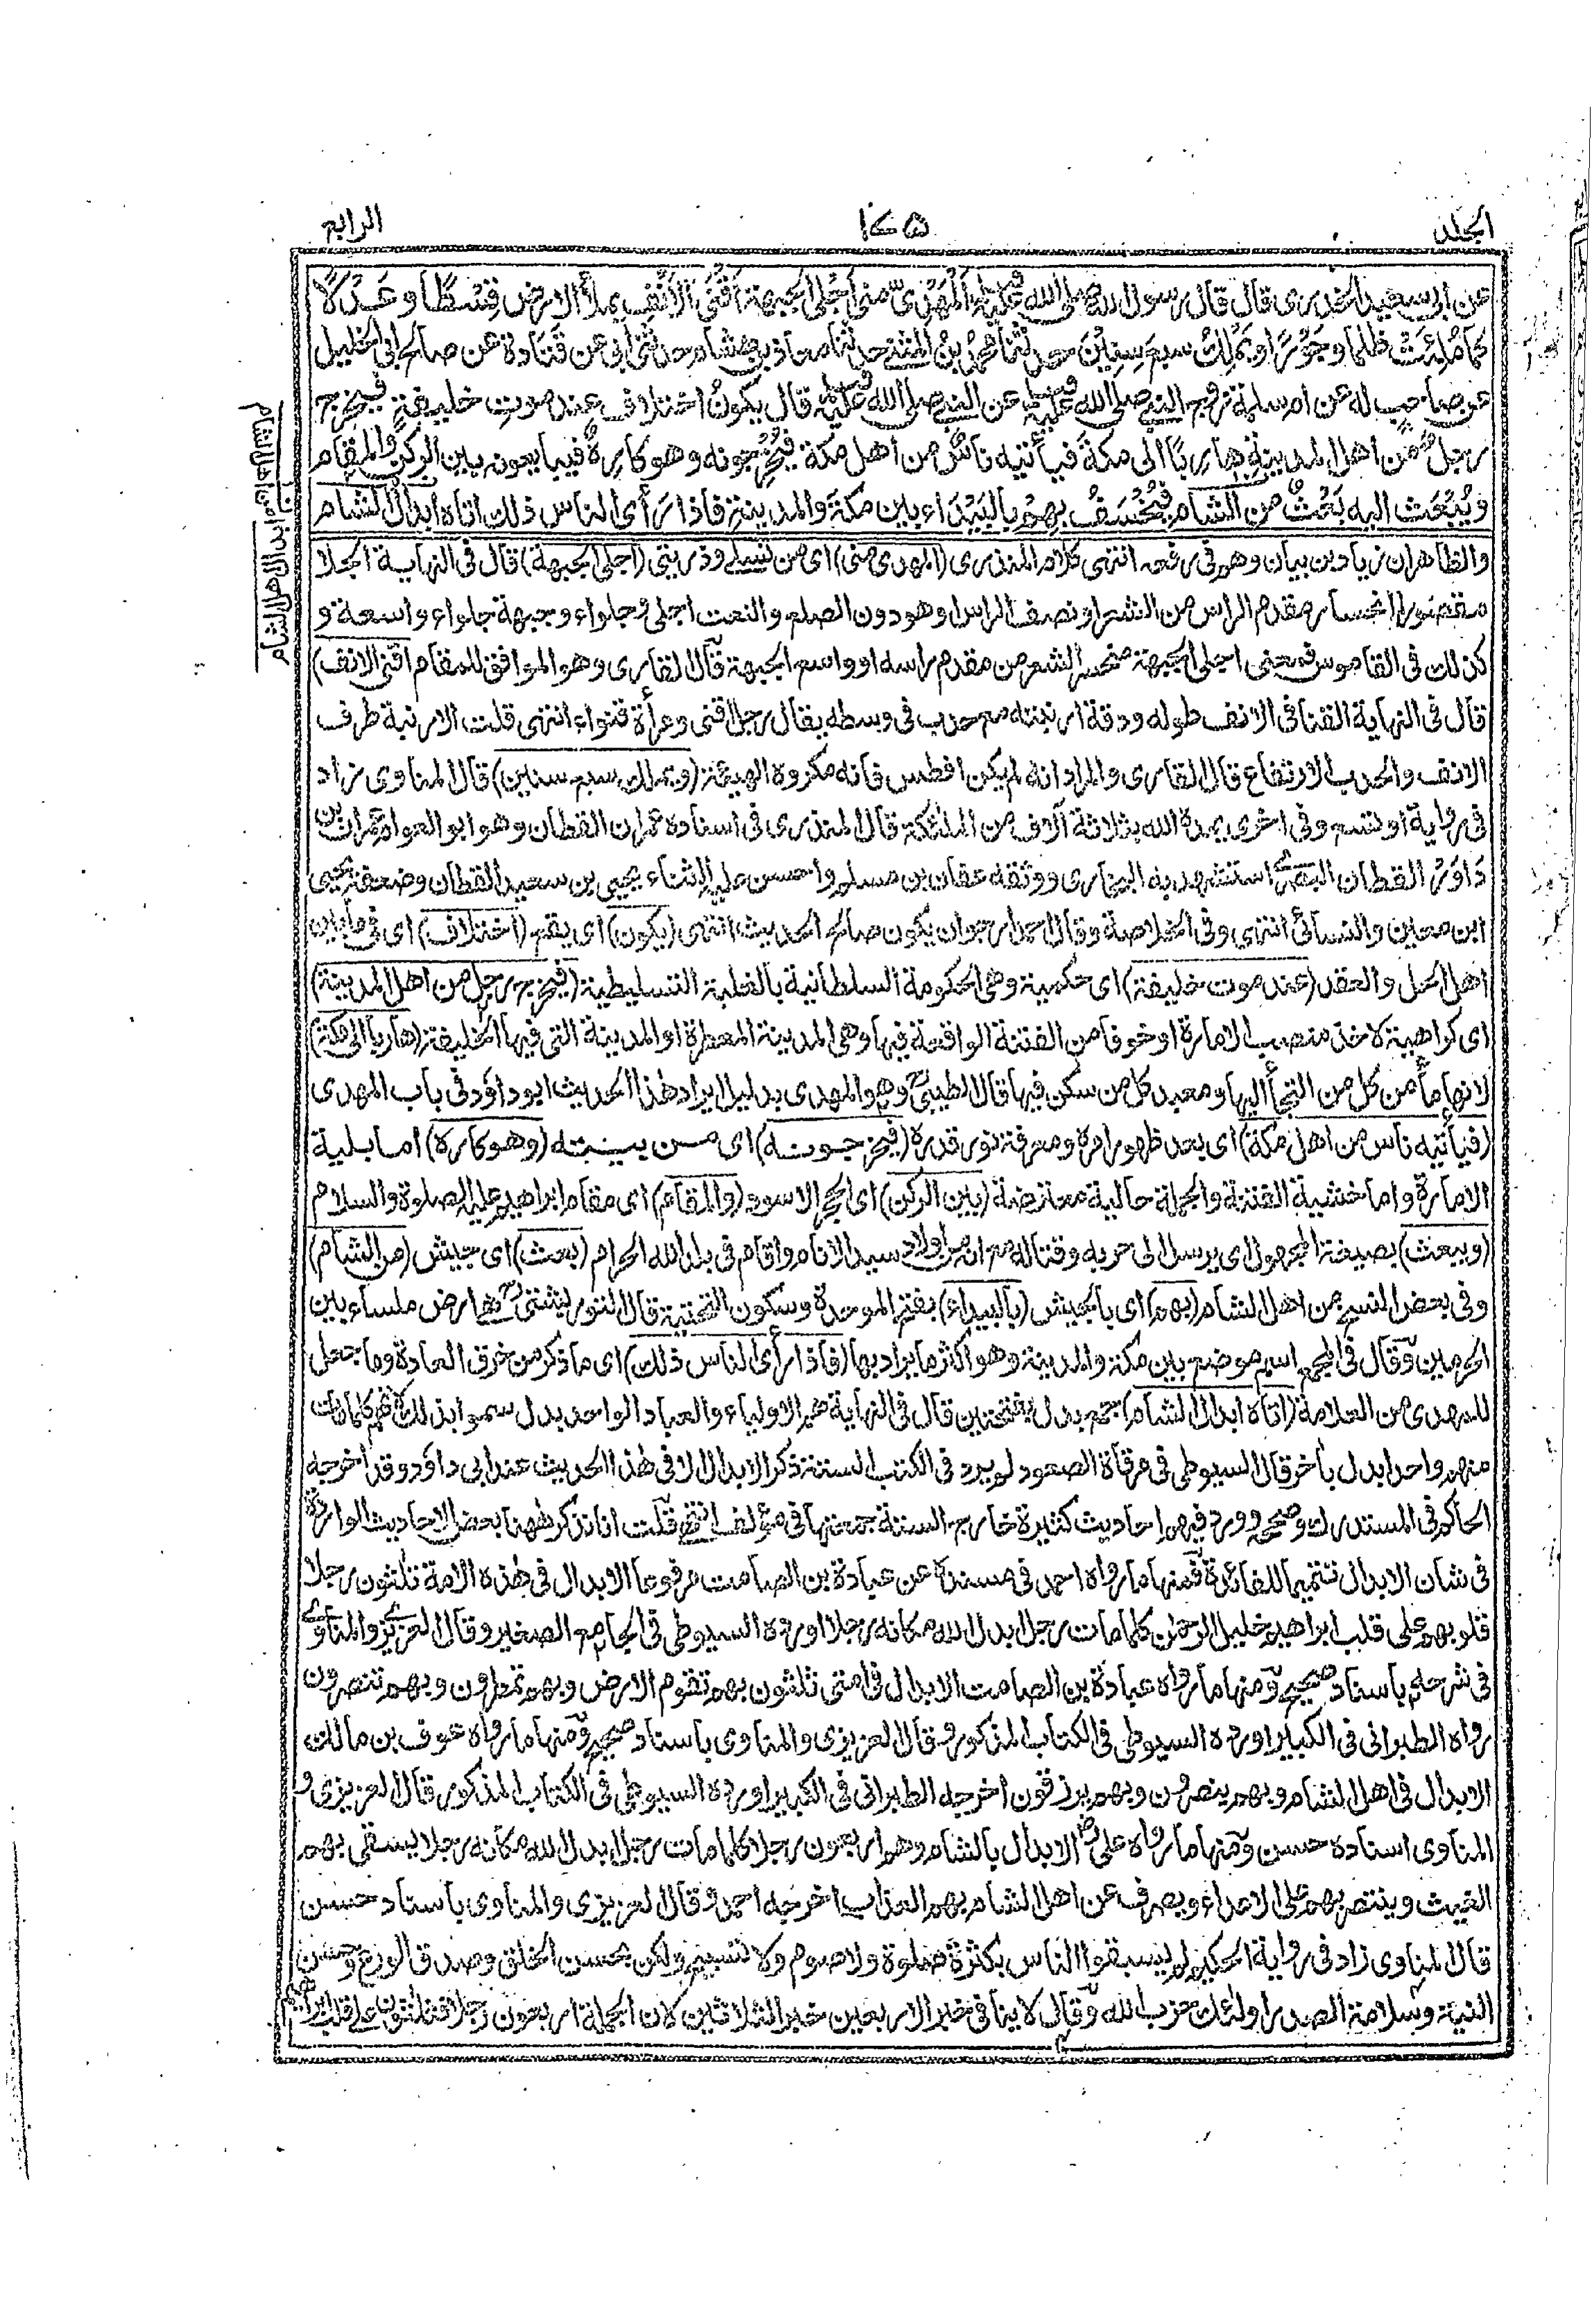 الجلد
١٧٥
الرابع
عن ابى سعيد الخدرى قال قال رسول الله صلى الله عليه وسلم اَلْمَهْدِىُّ منى اَجْلَى الجبهة اَقْنَى الْاَنْفِ يملأ الارض قِسْطًا وعَدْلًا
كما مُلِئَتْ ظلما وجَوْرًا ويَمْلِكُ سبع سِنِيْنَ حدثنا محمدُ بْنُ المثنى حدثنا معاذ بن هشام حدثنى ابى عن قتادة عن صالح ابى الخليل
عن صاحب له عن ام سلمة زوج النبى صلى الله عليه وسلم عن النبى صلى الله عليه وسلم قال يكونُ اختلاف عند موتِ خليفةٍ فيخرج
رجلٌ من اهل المدينةِ هارِبًا الى مكةَ فيأتيه ناسٌ من اهل مكة فيُخْرِجونه وهو كارِهٌ فيبايعونه بين الركن والمقام
ويُبْعَث اليه بَعْثٌ من الشام فيُخْسَفُ بهم بالبَيْدَاء بين مكةَ والمدينةِ فاذا رَأَى الناس ذلك اتاه اَبدالُ الشام
والظاهر ان زياد بن بيان وهم فى رفعه انتهى كلام المنذرى (المهدى منى) اى من نسلى وذريتى (اجلى الجبهة) قال فى النهاية الجلا
مقصورا انحسار مقدم الراس من الشعر او نصف الراس او هو دون الصلع والنعت اجلى وجلواء وجبهة جلواء واسعة و
كذلك فى القاموس فمعنى اجلى الجبهة منحسر الشعر من مقدم راسه او واسع الجبهة قال القارى وهو الموافق للمقام (اقنى الانف)
قال فى النهاية القنا فى الانف طوله ودقة ارنبته مع حدب فى وسطه يقال رجل اقنى وامرأة قنواء انتهى قلت الارنبة طرف
الانف والحدب الارتفاع قال القارى والمراد انه لم يكن افطس فانه مكروه الهيئة (ويملك سبع سنين) قال المناوى زاد
فى رواية او تسع وفى اخرى يمده الله بثلاثة آلاف من الملئكة قال المنذرى فى اسناده عمران القطان وهو ابو العوام عمران بن
دَاوَرَ القطان البصرى استشهد به البخارى ووثقه عفان بن مسلم واحسن عليه الثناء يحيى بن سعيد القطان وضعفه يحيى
ابن معين والنسائى انتهى وفى الخلاصة وقال احمد ارجو ان يكون صالح الحديث انتهى (يكون) اى يقع (اختلاف) اى فى ما بين
اهل الحل والعقد (عند موت خليفة) اى حكمية وهى الحكومة السلطانية بالغلبة التسليطية (فيخرج رجل من اهل المدينة)
اى كراهية لاخذ منصب الامارة او خوفا من الفتنة الواقعة فيها وهى المدينة المعطرة او المدينة التى فيها الخليفة (هاربا الى مكة)
لانها مأمن كل من التجأ اليها ومعبد كل من سكن فيها قال الطيبى وهو المهدى بدليل ايراد هذا الحديث ابو داؤد فى باب المهدى
(فيأتيه ناس من اهل مكة) اى بعد ظهور امره ومعرفة نور قدره (فيخرجونه) اى من بيته (وهو كاره) اما بلية
الامارة واما خشية الفتنة والجملة حالية معترضة (بين الركن) اى الحجر الاسود (والمقام) اى مقام ابراهيم عليه الصلوة والسلام
(ويبعث) بصيغة المجهول اى يرسل الى حربه وقتاله مع انه من اولاد سيد الانام واقام فى بلد الله الحرام (بعث) اى جيش (من الشام)
وفى بعض النسخ من اهل الشام (بهم) اى بالجيش (بالبيداء) بفتح الموحدة وسكون التحتية قال التوربشتى هى ارض ملساء بين
الحرمين وقال فى المجمع اسم موضع بين مكة والمدينة وهو اكثر ما يراد بها (فاذا رأى الناس ذلك) اى ما ذكر من خرق العادة وما جعل
للمهدى من العلامة (اتاه ابدال الشام) جمع بدل بفتحتين قال فى النهاية هم الاولياء والعباد الواحد بدل سموا بذلك لانهم كلما مات
منهم واحد ابدل بآخر قال السيوطى فى مرقاة الصعود لم يرد فى الكتب الستة ذكر الابدال الا فى هذا الحديث عند ابى داؤد وقد اخرجه
الحاكم فى المستدرك وصححه وورد فيهم احاديث كثيرة خارج الستة جمعتها فى مؤلف انتهى قلت انا نذكر ههنا بعض الاحاديث الواردة
فى شان الابدال تتميما للفائدة فمنها ما رواه احمد فى مسنده عن عبادة بن الصامت مرفوعا الابدال فى هذه الامة ثلثون رجلا
قلوبهم على قلب ابراهيم خليل الرحمن كلما مات رجل ابدل الله مكانه رجلا اورده السيوطى فى الجامع الصغير وقال العزيزى والمناوى
فى شرحه باسناد صحيح ومنها ما رواه عبادة بن الصامت الابدال فى امتى ثلثون بهم تقوم الارض وبهم تمطرون وبهم تنصرون
رواه الطبرانى فى الكبير اورده السيوطى فى الكتاب المذكور وقال العزيزى والمناوى باسناد صحيح ومنها ما رواه عوف بن مالك
الابدال فى اهل الشام وبهم ينصرون وبهم يرزقون اخرجه الطبرانى فى الكبير اورده السيوطى فى الكتاب المذكور قال العزيزى و
المناوى اسناده حسن ومنها ما رواه على رض الابدال بالشام وهم اربعون رجلا كلما مات رجل ابدل الله مكانه رجلا يسقى بهم
الغيث وينتصر بهم على الاعداء ويصرف عن اهل الشام بهم العذاب اخرجه احمد وقال العزيزى والمناوى باسناد حسن
قال المناوى زاد فى رواية الحكيم لم يسبقوا الناس بكثرة صلوة ولا صوم ولا تسبيح ولكن بحسن الخلق وصدق الورع وحسن
النية وسلامة الصدر اولئك حزب الله وقال لا ينافى خبر الاربعين خبر الثلاثين لان الجملة اربعون رجلا فثلثون على قلب ابراهيم